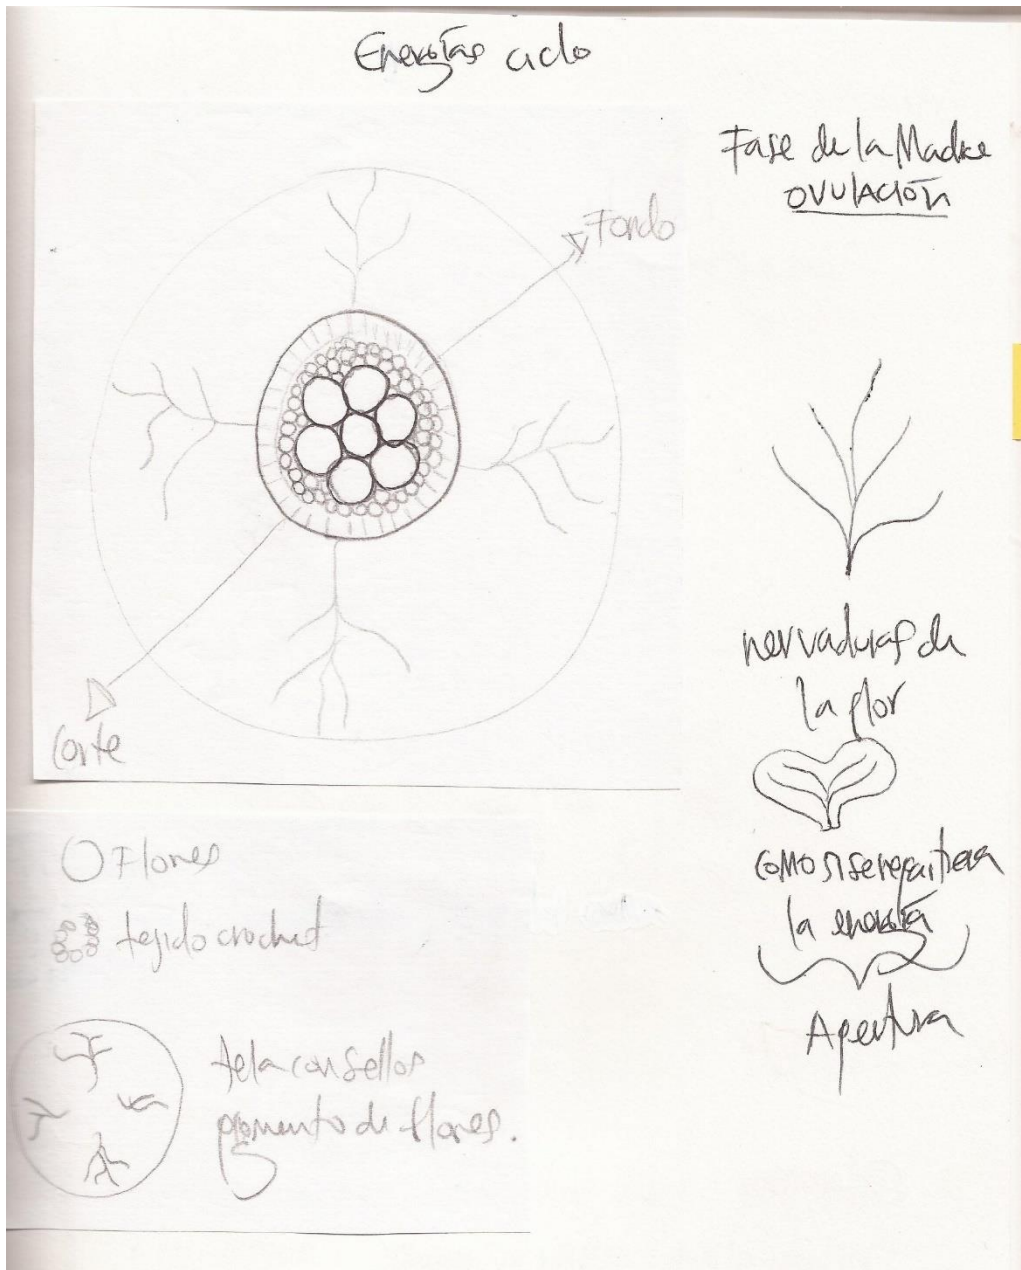 Energías ciclo
Fase de la Madre
OVULACIÓN
Fondo
Corte
nervaduras de
la flor
como si se repartiera
la energía
Apertura
Flores
tejido crochet
tela con sellos
pigmento de flores.